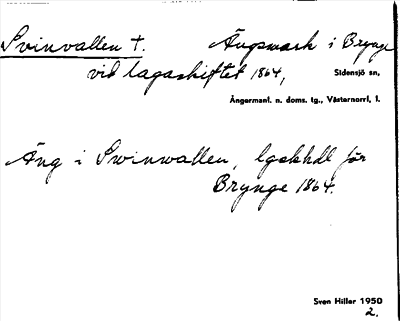 Svinvallen †. Ängsmark i Brynge
vid lagaskiftet 1864,
Sidensjö sn,
Ångermanl. n. doms. tg., Västernorrl. l.
Äng i Swinwallen, lgskhdl för
Brynge 1864.
Sven Hiller 1950
2.